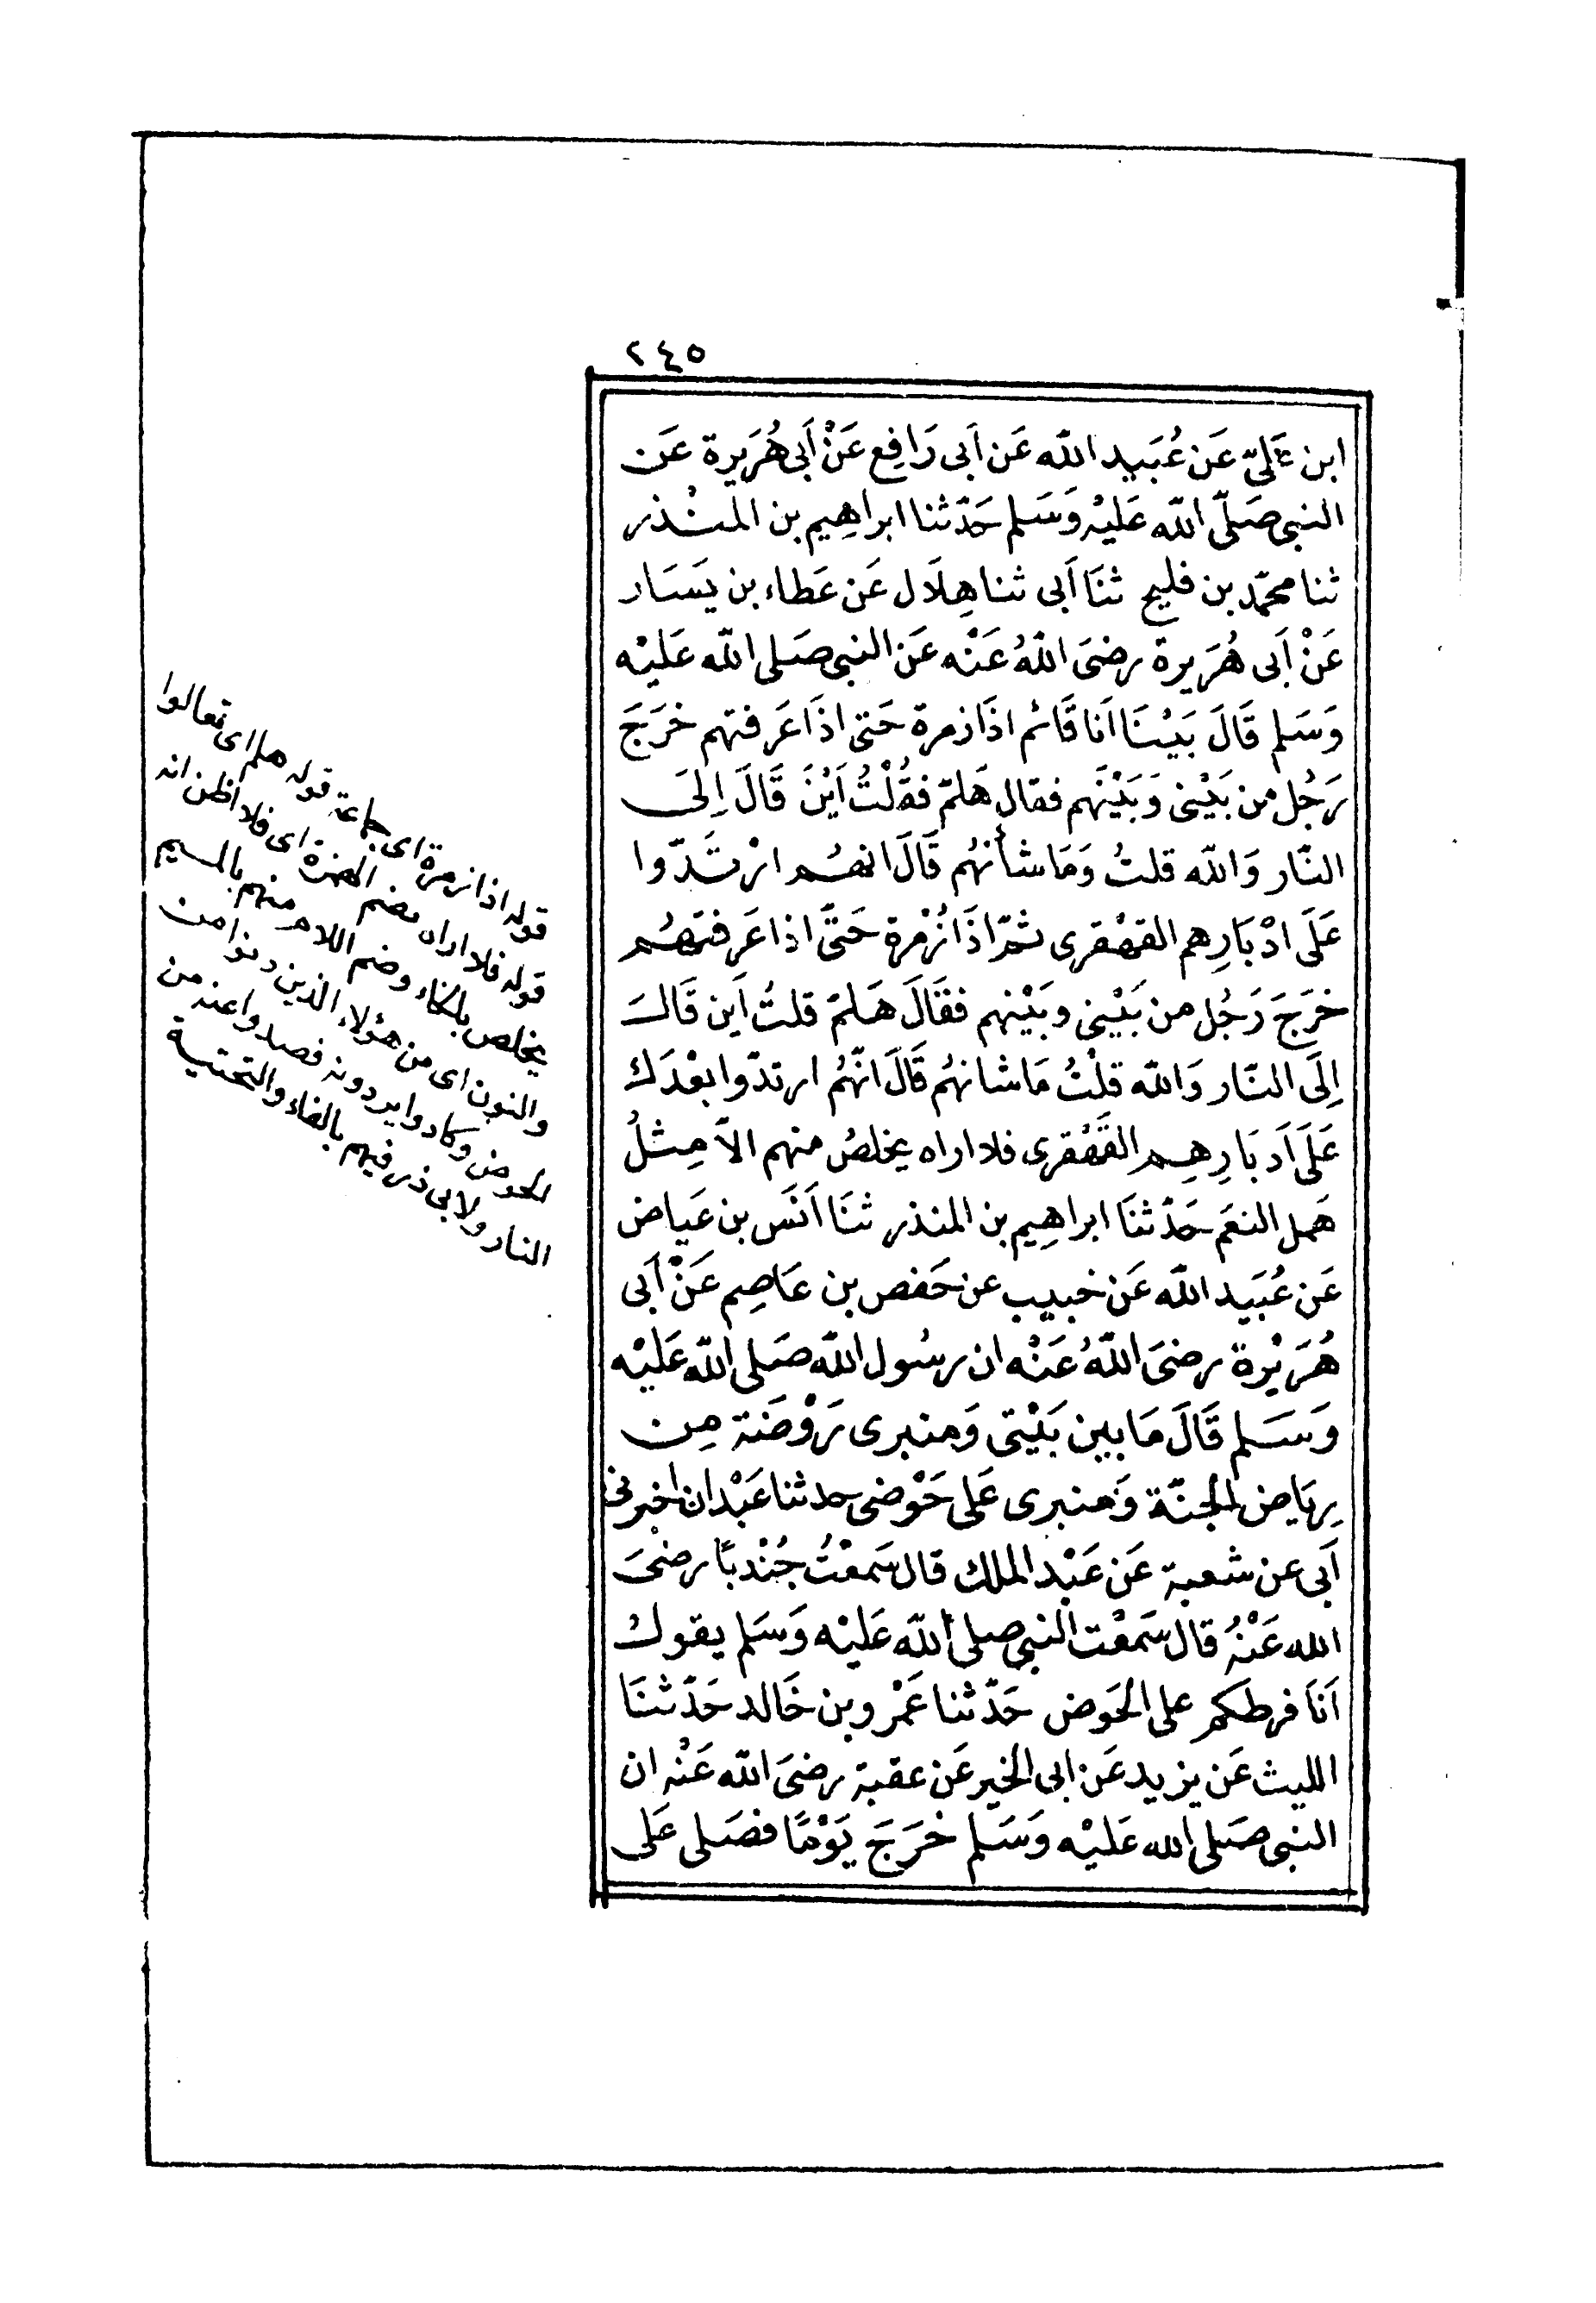 ٢٤٥
ابن عَلىّ عَن عُبَيد اللّه عَن اَبى رَافِع عَنْ اَبى هُرَيرة عَن
النبى صَلّى اللّه عَليْه وَسَلم حَدّثنا ابراهِيم بن المنْذر
ثنا محمّد بن فليح ثنَا اَبى ثنا هِلَال عَن عَطاء بن يَسَار
عَنْ اَبى هُرَيرة رضىَ اللّهُ عَنْه عَن النبى صَلى اللّه عَليْه
وَسَلم قَالَ بَيْنَا اَنا قَائم اذَا زمرة حَتى اذَا عَرفتهم خرَجَ
رَجُل من بَيْنى وَبَيْنَهم فقال هَلمّ فقُلْتُ اَيْنَ قَالَ اِلىَ
النّار وَاللّه قلتُ وَمَا شأنهُم قَالَ انهُم ارْتَدّوا
عَلَى ادْبَارِهم القهْقرى ثمّ اذَا زُمْرة حَتَّى اذا عَرفتهُم
خرَجَ رَجُل من بَيْنى وبَيْنهم فقَالَ هَلمّ قلتُ اَين قَالَ
اِلَى النّار وَاللّه قلْتُ مَا شانهُم قَالَ انّهُم ارتدّوا بعْدَك
عَلَى اَدبَارِهِم القَهْقرى فلا اراه يخلصُ منهم الاّ مِثلُ
همل النعَم حَدّثنَا ابراهِيم بن المنذر ثنَا اَنَس بن عَياض
عَن عُبَيد اللّه عَن خبيب عن حَفص بن عَاصِم عَنْ اَبى
هُرَيْرة رضىَ اللّهُ عَنْه ان رسُول اللّه صَلى اللّه عَليْه
وَسَلم قَالَ مَا بين بَيْتى وَمنبرى رَوْضَة مِن
رِيَاض الجنّة وَمنبرى عَلى حَوْضى حدثنا عَبْدان اخبرنى
اَبى عن شعبة عَن عَبْد الملك قال سَمعْتُ جُنْدبًا رضىَ
الله عَنْهُ قال سَمعْت النبى صلى اللّه عَليْه وَسَلم يقول
اَنَا فرطكم على الحَوض حَدّثنا عَمْرو بن خَالد حَدّثنَا
الليث عَن يزيد عَن ابى الخير عَن عقبة رضىَ اللّه عَنْه ان
النبى صَلى الله عَليْه وَسَلم خرَجَ يَوْمًا فصَلى عَلى
قوله اذا زمرة اى جماعة قوله هلم اى تعالوا
قوله فلا اراه بضم الهمزة اى فلا اظن انه
يخلص بالخاء وضم اللام منهم بالميم
والنون اى من هؤلاء الذين دنوا من
الحوض وكادوا يردونه فصدوا عنه من
النار ولابى ذر فيهم بالفاء والتحتية